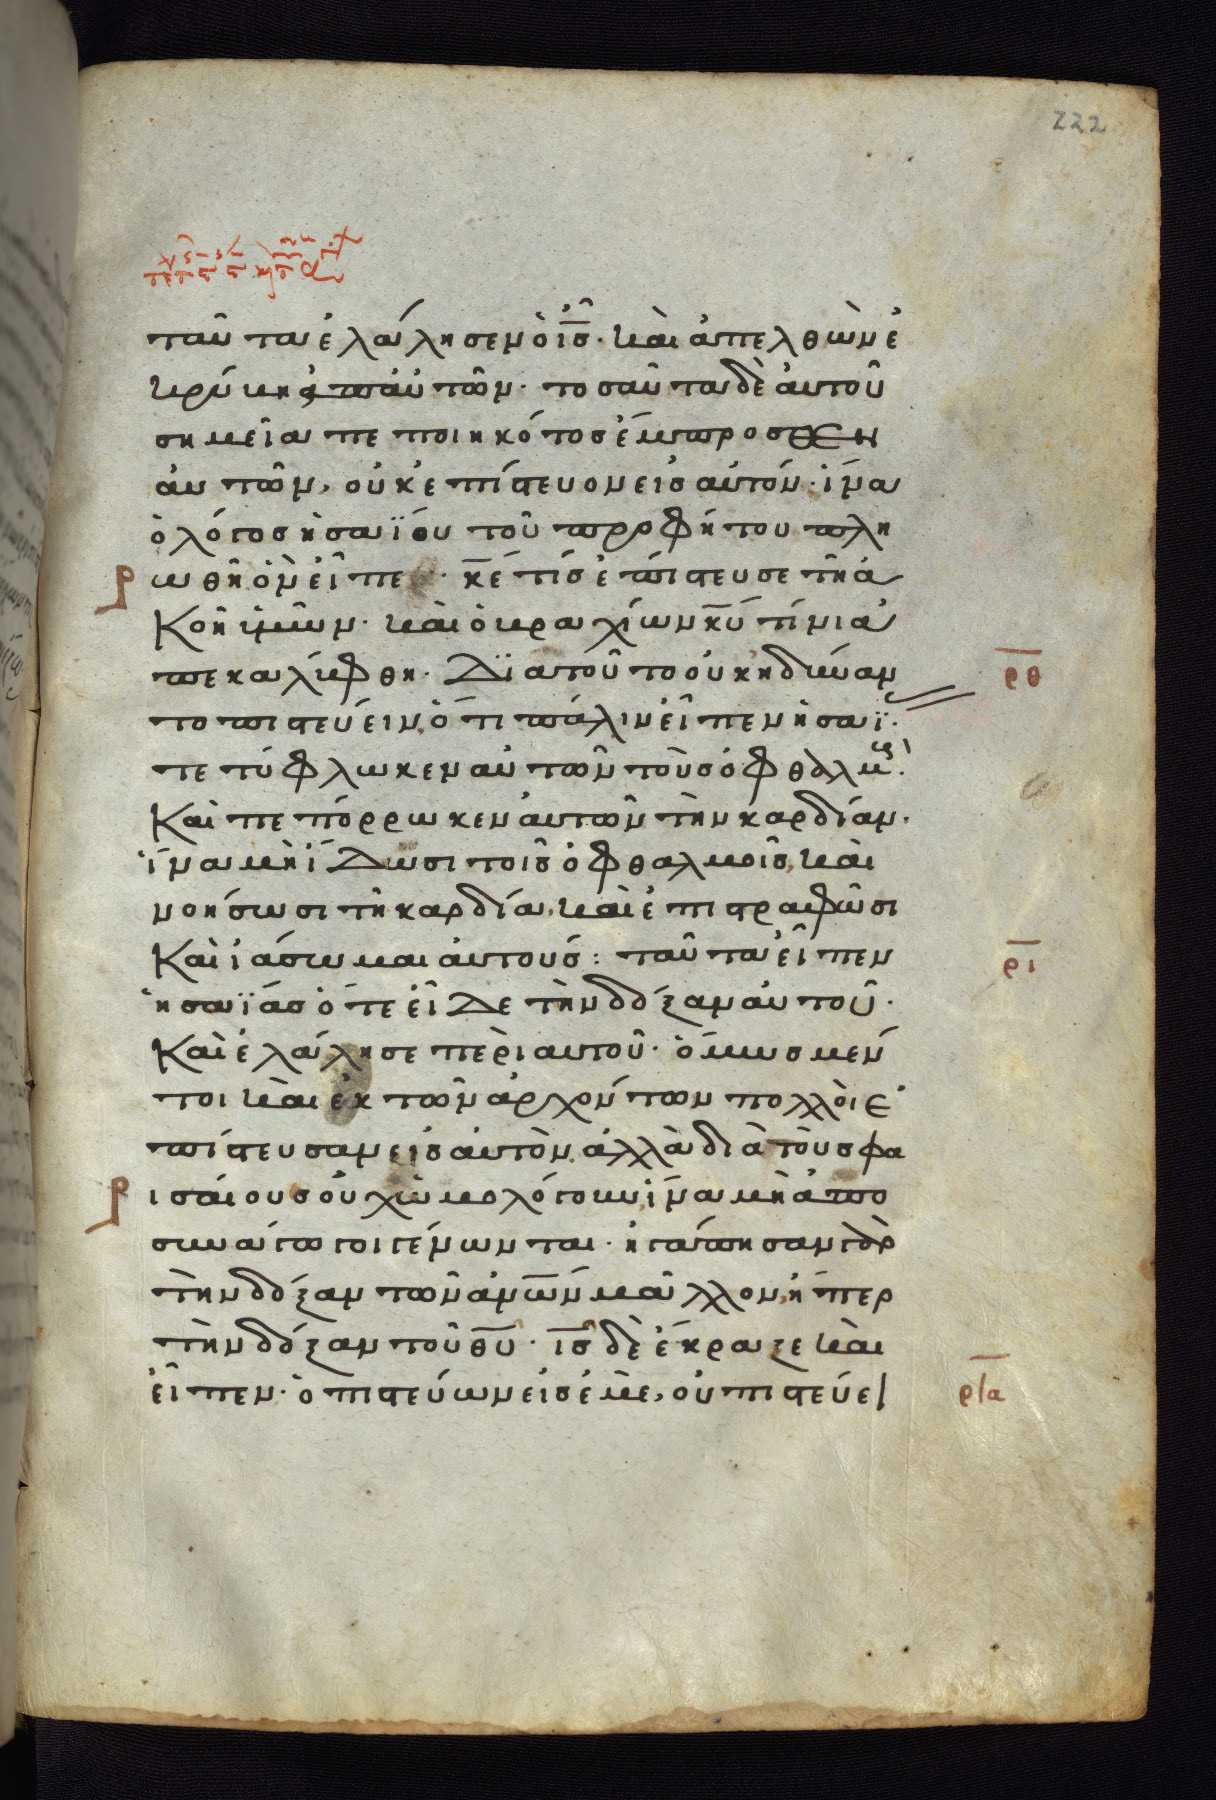 222
ταῦτα ἐλάλησεν ὁ ἰς̅· καὶ ἀπελθὼν ἐ
κρύβη ἀπ' αὐτῶν· τοσαῦτα δὲ αὐτοῦ
σημεῖα πεποιηκότος ἔμπροσθεν
αὐτῶν, οὐκ ἐπίστευον εἰς αὐτόν· ἵνα
ὁ λόγος ἡσαΐου τοῦ προφήτου πλη
ρωθῆ ὃν εἶπε· κ̅ε τίς ἐπίστευσε τῆ ἀ
κοῆ ἡμῶν· καὶ ὁ βραχίων κ̅υ τίνι ἀ
πεκαλύφθη· Διατοῦτο οὐκ ηδύναν
ρθ
το πιστεύειν, ὅτι πάλιν εἶπεν ἡσαΐ·
τετύφλωκεν αὐτῶν τοὺς ὀφθαλμ·
Καὶ πεπόρρωκεν αὐτῶν τὴν καρδίαν·
ἵνα μὴ ἴδωσι τοῖς ὀφθαλμοῖς, καὶ
νοήσωσι τῆ καρδία, καὶ ἐπιστραφῶσι
Καὶ ἰάσωμαι αὐτούς: ταῦτα εἶπεν
ρι
ἡσαΐας ὅτε εἶδε τὴν δόξαν αὐτοῦ·
Καὶ ἐλάλησε περὶ αυτοῦ· ὅμως μέν
τοι καὶ ἐκ τῶν ἀρχόντων πολλοὶ ἐ
πίστευσαν εἰς αὐτὸν, ἀλλὰ διὰ τοὺς φα
ρισαίους οὐχ ὡμολόγουν, ἵνα μὴ ἀπο
συναγωγοι γένωνται· ἠγάπησαν γὰρ
τὴν δόξαν τῶν ἀν̅ων μᾶλλον, ἤπερ
τὴν δόξαν τοῦ θ̅υ· ι̅ς δὲ ἔκραξε καὶ
εἶπεν· ὁ πιστεύων εἰς ἐμὲ, οὐ πιστεύει
ρια